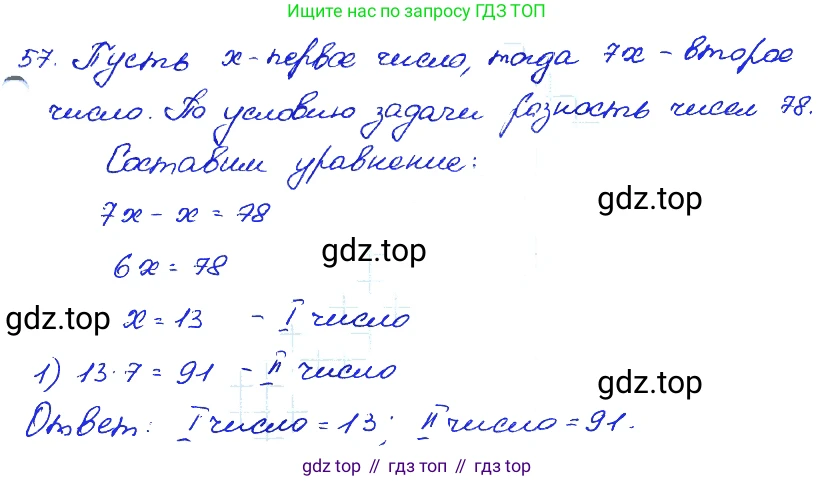 Ищите нас по запросу ГДЗ ТОП
57. Пусть x - первое число, тогда 7x - второе
число. По условию задачи разность чисел 78.
Составим уравнение:
7x - x = 78
gdz.top
6x = 78
gdz.top
gdz.top
x = 13 - I число
1) 13·7 = 91 - II число
gdz.top
Ответ: I число = 13; II число = 91.
gdz top // гдз топ // гдз top